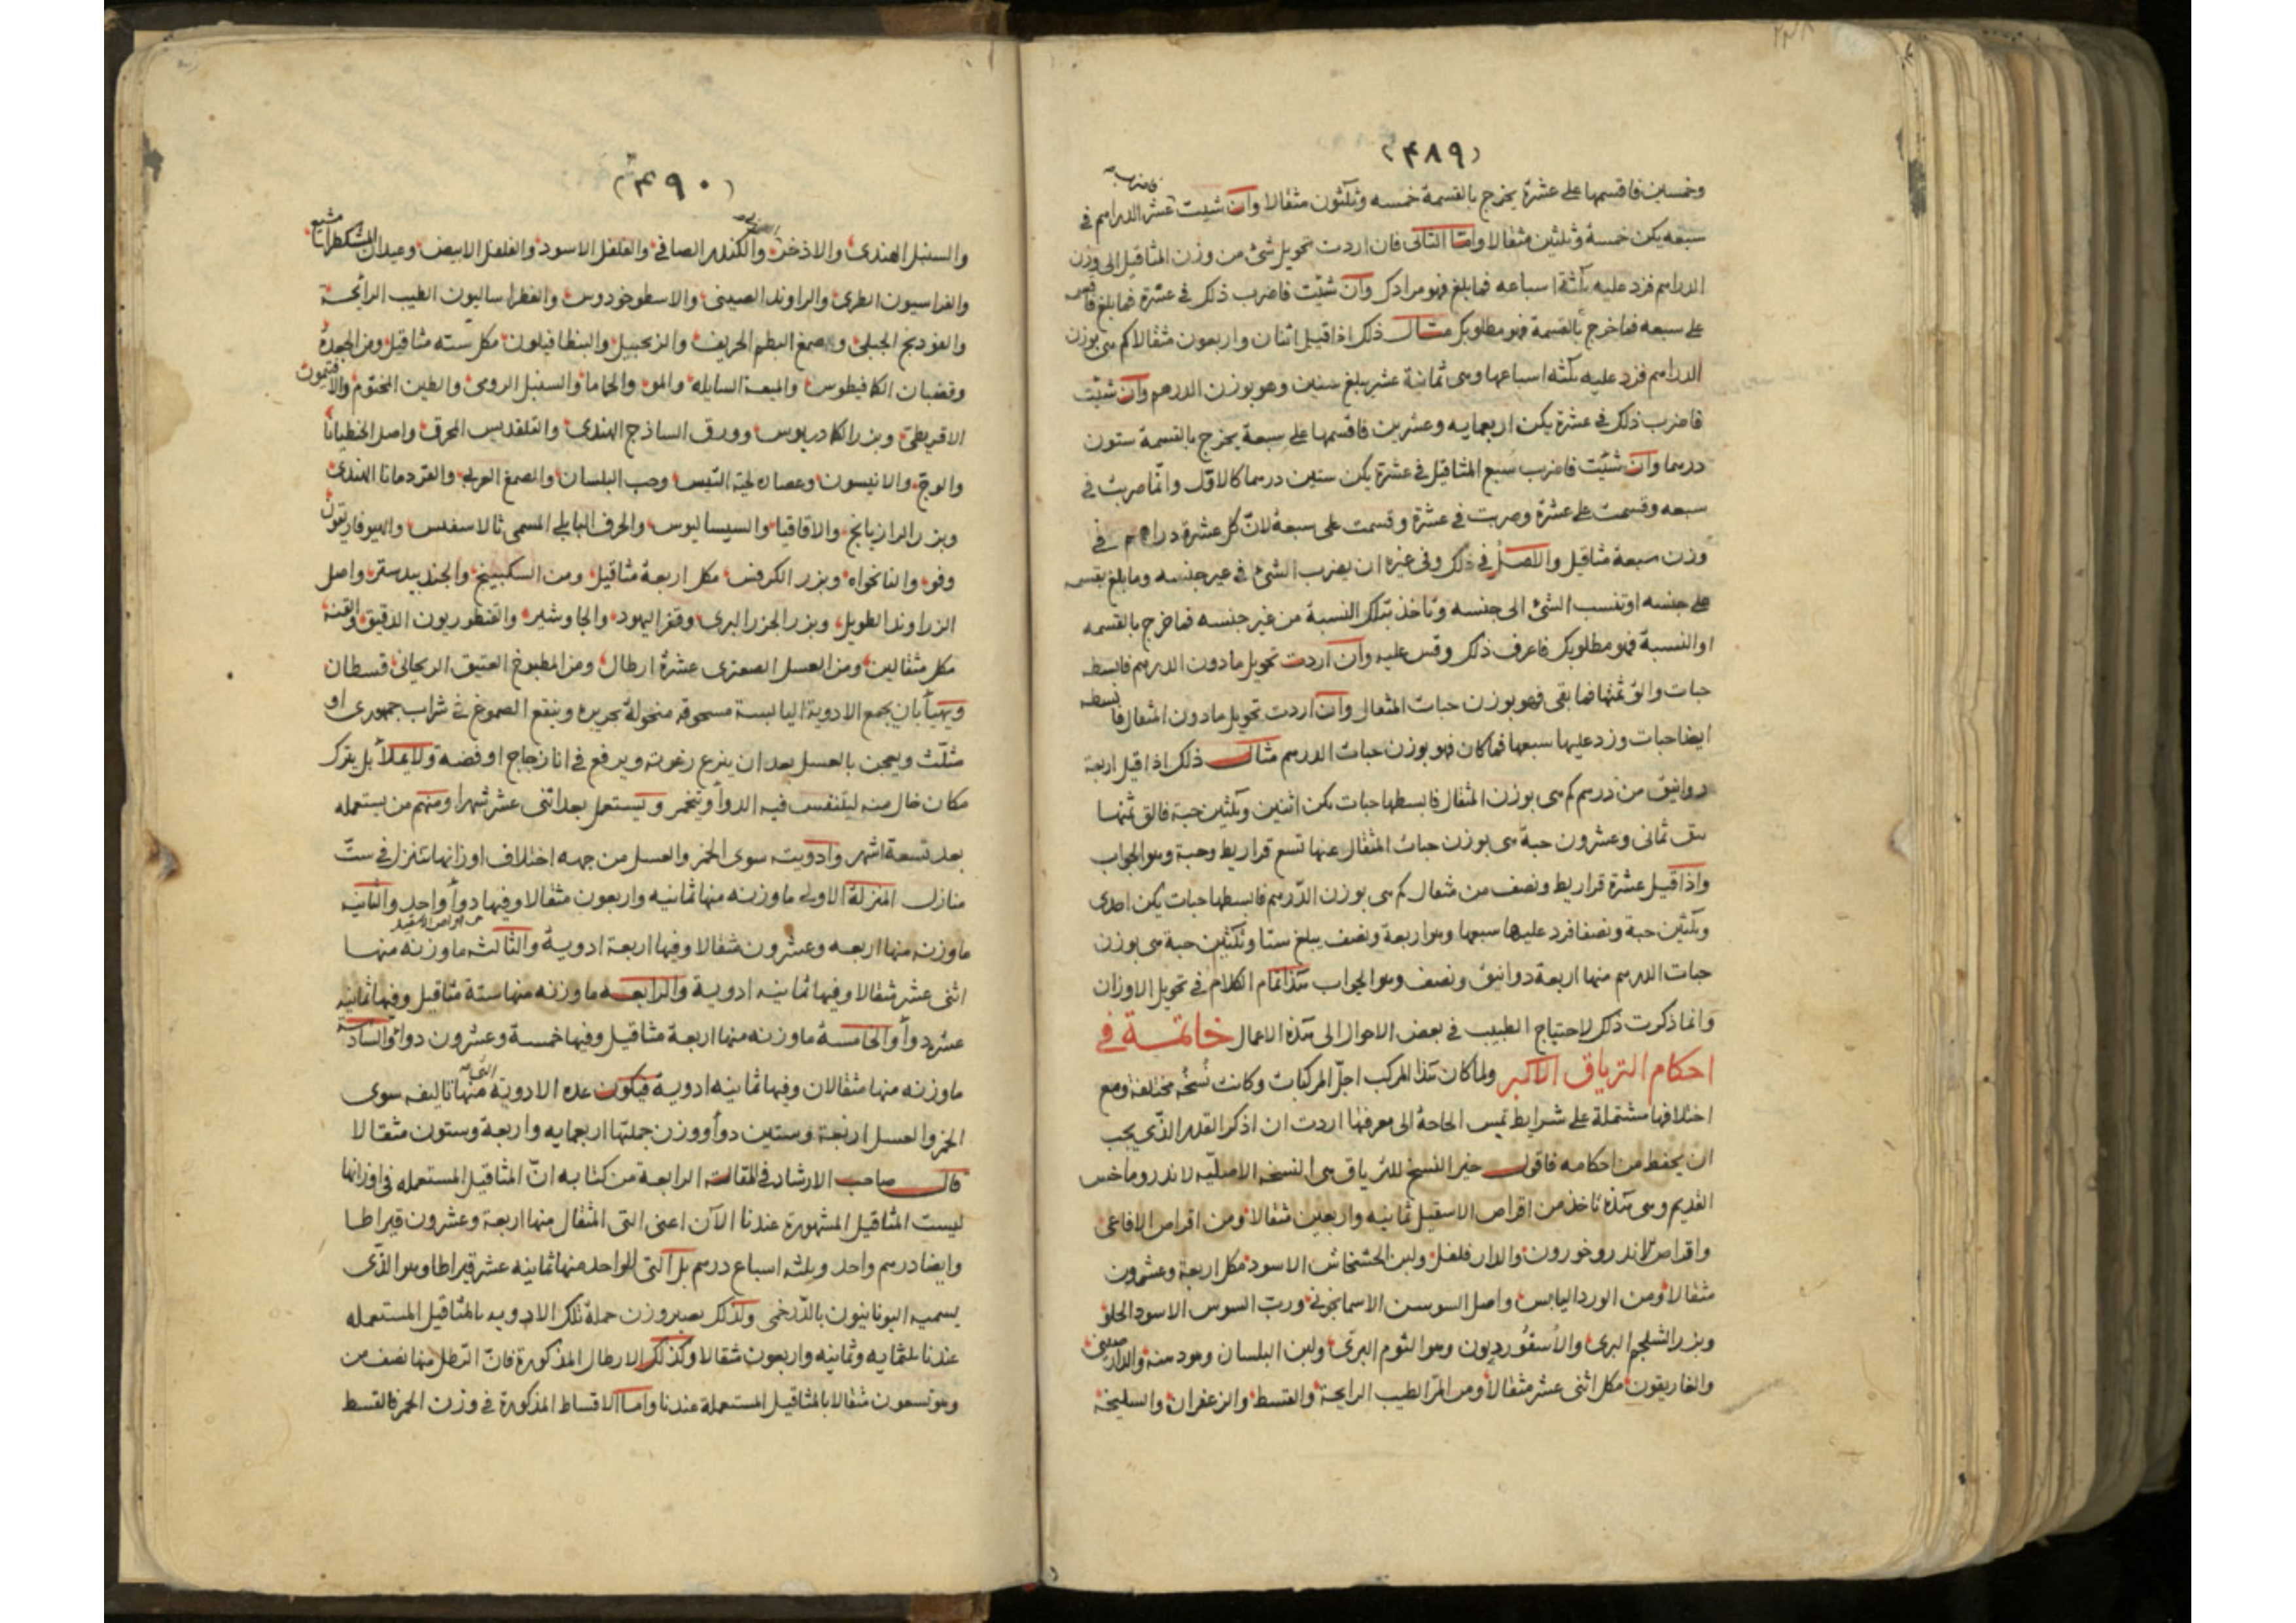 (۴۸۹)
وخمسين فاقسمها على عشرة يخرج بالقسمة خمسه وثلثون مثقالا وان شيت فاضرب عشر الدراهم في
سبعه يكن خمسة وثلثين مثقالا واما الثاني فان اردت تحويل شئ من وزن المثاقيل الى وزن
الدراهم فزد عليه ثلثة اسباعه فما بلغ فهو مرادك وان شئت فاضرب ذلك في عشرة فما بلغ فاقسمه
على سبعه فما خرج بالقسمة فهو مطلوبك مثال ذلك اذا قيل اثنان واربعون مثقالا كم هى بوزن
الدراهم فزد عليه ثلثه اسباعها وهى ثمانية عشر يبلغ ستين وهو بوزن الدرهم وان شئت
فاضرب ذلك في عشرة يكن اربعمايه وعشرين فاقسمها على سبعة يخرج بالقسمة ستون
درهما وان شئت فاضرب سبع المثاقيل في عشرة يكن ستين درهما كالاول وانما ضربت في
سبعه وقسمت على عشرة وضربت في عشرة وقسمت على سبعة لان كل عشرة دراهم في
وزن سبعة مثاقيل والاصل في ذلك وفي غيره ان يضرب الشئ في غير جنسه وما بلغ يقسمه
على جنسه او تنسب الشئ الى جنسه وتاخذ بتلك النسبة من غير جنسه فما خرج بالقسمه
او النسبة فهو مطلوبك فاعرف ذلك وقس عليه وان اردت تحويل ما دون الدرهم فابسطه
حبات والق ثمنها فما بقى فهو بوزن حبات المثقال وان اردت تحويل ما دون المثقال فابسطه
ايضا حبات وزد عليها سبعها فما كان فهو بوزن حبات الدرهم مثال ذلك اذا قيل اربعة
دوانيق من درهم كم هى بوزن المثقال فابسطها حبات يكن اثنين وثلثين حبة فالق ثمنها
يبق ثمانى وعشرون حبة هى بوزن حبات المثقال عنها تسع قراريط وحبة وهو الجواب
واذا قيل عشرة قراريط ونصف من مثقال كم هى بوزن الدرهم فابسطها حبات يكن احدى
وثلثين حبة ونصفا فزد عليها سبعها وهو اربعة ونصف يبلغ ستا وثلثين حبة هى بوزن
حبات الدرهم منها اربعة دوانيق ونصف وهو الجواب هذا تمام الكلام في تحويل الاوزان
وانما ذكرت ذلك لاحتياج الطبيب في بعض الاحوال الى هذه الاعمال خاتمة في
احكام الترياق الاكبر ولما كان هذا المركب اجل المركبات وكانت نسخه مختلفة ومع
اختلافها مشتملة على شرايط تمس الحاجة الى معرفتها اردت ان اذكر القدر الذى يجب
ان يحفظ من احكامه فاقول خير النسخ للترياق هى النسخة الاصليه لاندروماخس
القديم وهى هذه تاخذ من اقراص الاسقيل ثمانيه واربعين مثقالا ومن اقراص الافاعى
واقراص الاندروخورون والدار فلفل ولبن الخشخاش الاسود مكل اربعة وعشرون
مثقالا ومن الورد اليابس واصل السوسن الاسمانجونى ورب السوس الاسود الحلو
وبزر الشلجم البرى والاسقورديون وهو الثوم البرى ولبن البلسان وهو دهنه والدارصينى
والغاريقون مكل اثنى عشر مثقالا ومن المر الطيب الرايحة والقسط والزعفران والسليخة
(۴۹۰)
والسنبل الهندى والاذخر والكندر الصافى والفلفل الاسود والفلفل الابيض وعيدان المشكطرامشيع
والفراسيون الطرى والراوند الصينى والاسطوخودوس والفطراساليون الطيب الرائحة
والفوديخ الجبلى وصمغ البطم الحريف والزنجبيل والبنطافيلون مكل سته مثاقيل ومن الجعدة
وقضبان الكافيطوس والميعة السايله والمو والحاما والسنبل الرومى والطين المختوم والافتيمون
الاقريطى وبزر الكادريوس وورق الساذج الهندى والقلقديس المحرق واصل الجنطيانا
والوج والانيسون وعصاره لحية التيس وحب البلسان والصمغ العربى والقردمانا الهندى
وبزر الرازيانج والاقاقيا والسيساليوس والحرف البابلى المسمى ثالاسفيس والهيوفاريقون
وفو والنانخواه وبزر الكرفس مكل اربعة مثاقيل ومن السكبينج والجندبيدستر واصل
الزراوند الطويل وبزر الجزر البرى وقفر اليهود والجاوشير والقنطوريون الدقيق والقنه
مكل مثقالين ومن العسل الصعترى عشرة ارطال ومن المطبوخ العتيق الريحانى قسطان
ويهيأ بان يجمع الادوية اليابسة مسحوقه منخولة بحريره وينقع الصموغ في شراب جمهورى او
مثلث ويعجن بالعسل بعد ان ينزع رغوته ويرفع في انا زجاج او فضه ولا يملا بل يترك
مكان خال منه ليتنفس فيه الدوا ويتخمر ويستعمل بعد اثنى عشر شهرا ومنهم من يستعمله
بعد تسعة اشهر وادويته سوى الخمر والعسل من جهه اختلاف اوزانها تتنزل في ست
منازل المنزلة الاولى ما وزنه منها ثمانيه واربعون مثقالا وفيها دوا واحد والثانيه
ما وزنه منها اربعه وعشرون مثقالا وفيها اربعة ادوية والثالثه ما وزنه منها
اثنى عشر مثقالا وفيها ثمانيه ادوية والرابعه ما وزنه منها ستة مثاقيل وفيها ثمانيه
عشره دوا والخامسة ما وزنه منها اربعة مثاقيل وفيها خمسة وعشرون دوا والسادسة
ما وزنه منها مثقالان وفيها ثمانيه ادوية فيكون عده الادوية التى منها تاليفه سوى
الخمر والعسل اربعة وستين دوا ووزن جملتها اربعمايه واربعة وستون مثقالا
قال صاحب الارشاد في المقالة الرابعة من كتابه ان المثاقيل المستعمله في اوزانها
ليست المثاقيل المشهورة عندنا الآن اعنى التى المثقال منها اربعة وعشرون قيراطا
وايضا درهم واحد وثلثه اسباع درهم بل التى الواحد منها ثمانيه عشر قيراطا وهو الذى
يسميه اليونانيون بالدرخمى ولذلك يصير وزن جملة تلك الادويه بالمثاقيل المستعمله
عندنا ثلثمايه وثمانيه واربعون مثقالا وكذلك الارطال المذكورة فان الرطل منها نصف من
وهو تسعون مثقالا بالمثاقيل المستعملة عندنا واما الاقساط المذكورة في وزن الخمر فالقسط